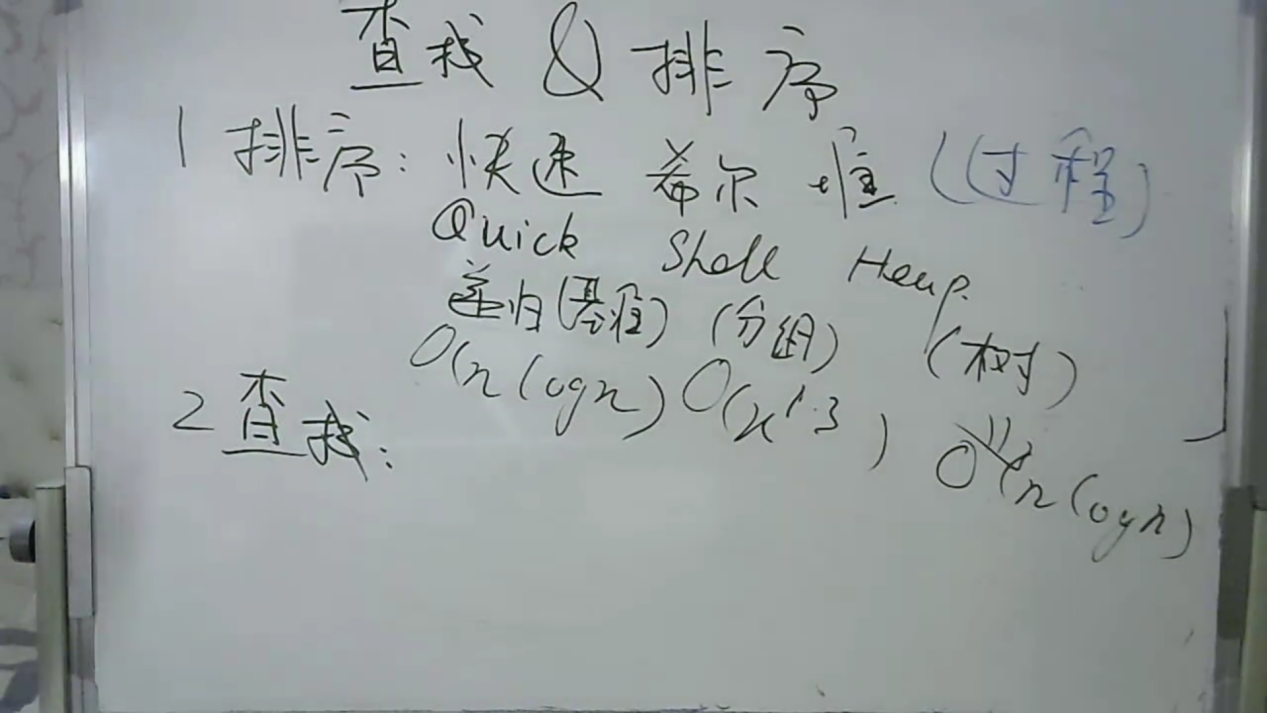 查找 & 排序
1 排序: 快速 希尔 堆 (过程)
Quick Shell Heap
递归(基准) (分组) (树)
O(nlogn) O(n1.3) O(nlogn)
2 查找: